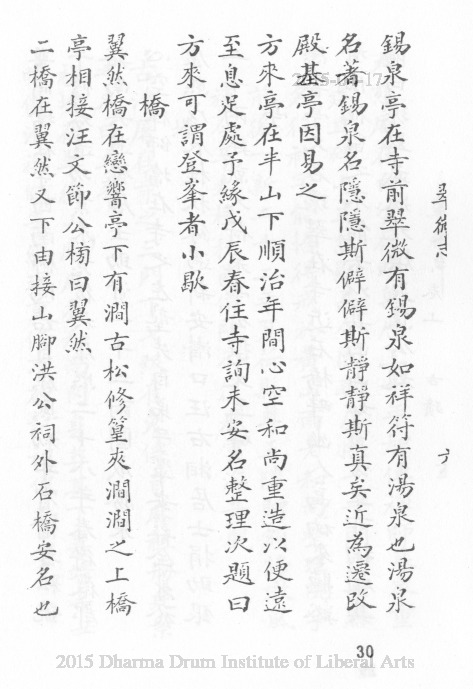 翠微志
六
錫泉亭在寺前翠微有錫泉如祥符有湯泉也湯泉
名著錫泉名隱隱斯僻僻斯靜靜斯真矣近為遷改
殿基亭因易之
方來亭在半山下順治年間心空和尚重造以便遠
至息足處予緣戊辰春住寺詢未安名整理次題曰
方來可謂登峯者小歇
橋
翼然橋在戀響亭下有澗古松修篁夾澗澗之上橋
亭相接汪文節公榜曰翼然
二橋在翼然又下由接山腳洪公祠外石橋安名也
30
2015 Dharma Drum Institute of Liberal Arts